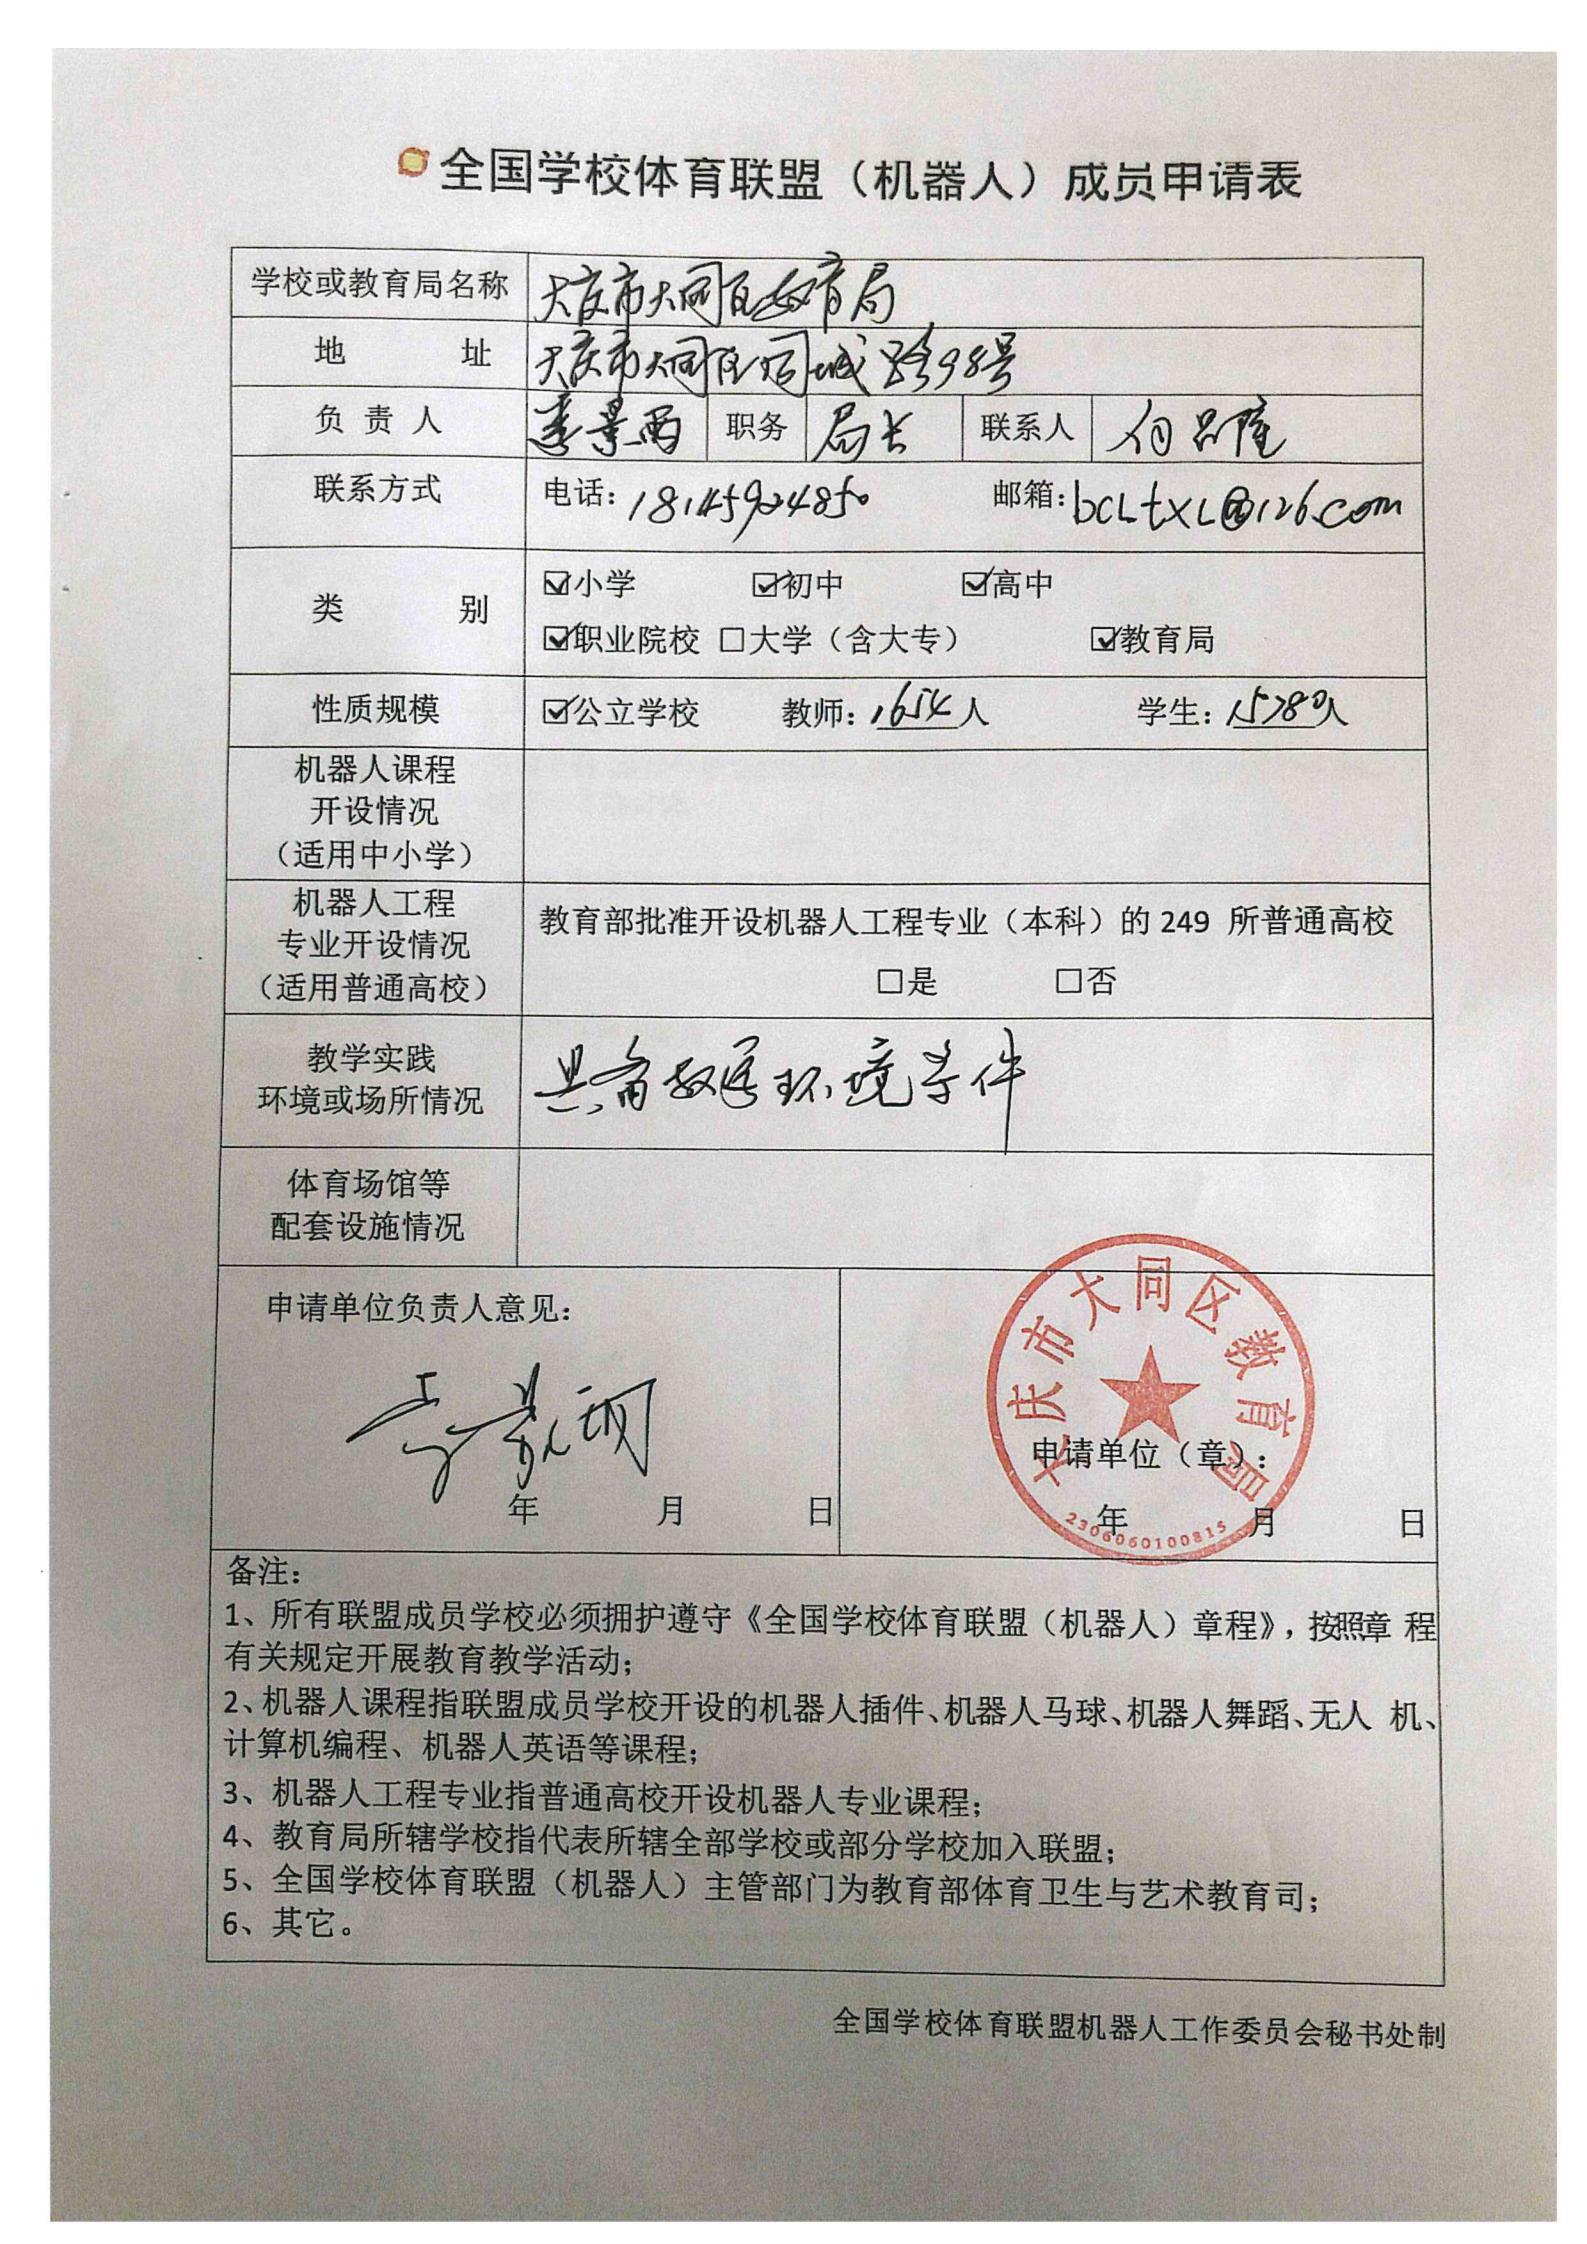 全国学校体育联盟（机器人）成员申请表
学校或教育局名称 大庆市大同区教育局
地 址 大庆市大同区同城路98号
负 责 人 职务 局长 联系人
联系方式 电话：18145924850 邮箱：bcltxl@126.com
☑小学 ☑初中 ☑高中
类 别
☑职业院校 □大学（含大专） ☑教育局
性质规模 ☑公立学校 教师：1654人 学生：15780人
机器人课程
开设情况
（适用中小学）
机器人工程
专业开设情况
（适用普通高校）
教育部批准开设机器人工程专业（本科）的 249 所普通高校
□是 □否
教学实践
环境或场所情况
具备教学环境条件
体育场馆等
配套设施情况
申请单位负责人意见：
年 月 日
大庆市大同区教育局
申请单位（章）：
年 月 日
2306060100815
备注：
1、所有联盟成员学校必须拥护遵守《全国学校体育联盟（机器人）章程》，按照章 程
有关规定开展教育教学活动；
2、机器人课程指联盟成员学校开设的机器人插件、机器人马球、机器人舞蹈、无人 机、
计算机编程、机器人英语等课程；
3、机器人工程专业指普通高校开设机器人专业课程；
4、教育局所辖学校指代表所辖全部学校或部分学校加入联盟；
5、全国学校体育联盟（机器人）主管部门为教育部体育卫生与艺术教育司；
6、其它。
全国学校体育联盟机器人工作委员会秘书处制